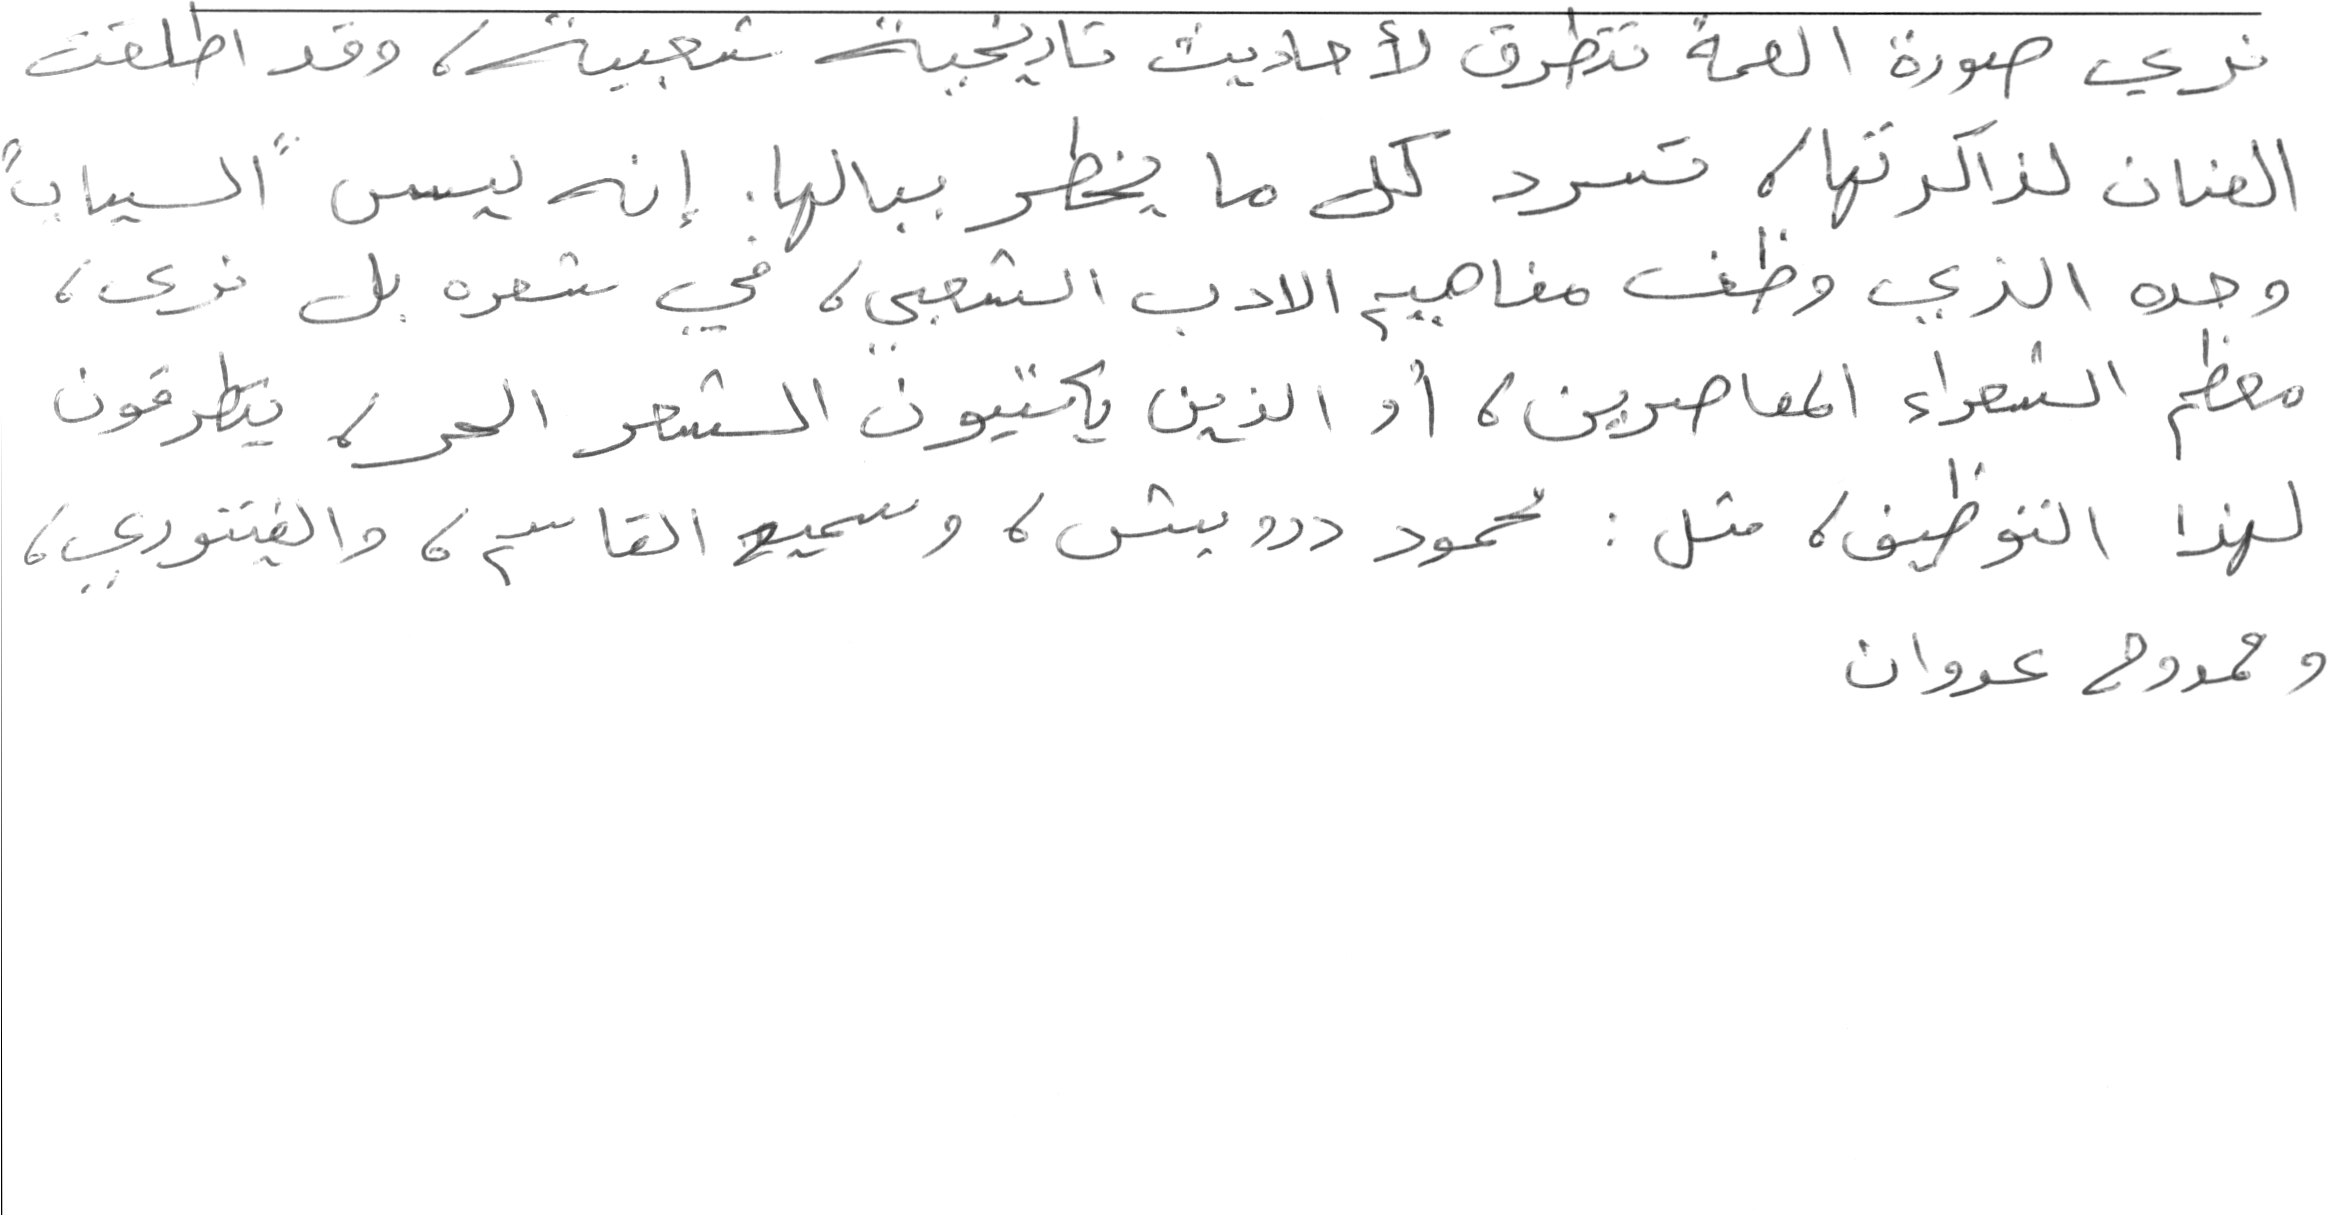 نرى صورة العمة تتطرق لأحاديث تاريخية شعبية، وقد اطلقت
العنان لذاكرتها، تسرد كل ما يخطر ببالها. إنه ليس "السياب"
وحده الذي وظف مفاهيم الادب الشعبي، في شعره بل نرى،
معظم الشعراء المعاصرين، أو الذين يكتبون الشعر الحر، يتطرقون
لهذا التوظيف، مثل: محمود درويش، وسميح القاسم، والفيتوري،
وممدوح عدوان